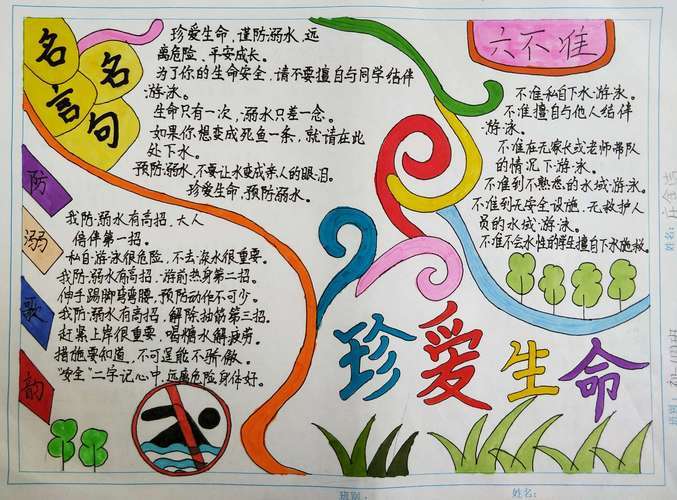 名言
名句
珍爱生命,谨防溺水,远
离危险,平安成长。
为了你的生命安全,请不要擅自与同学结伴
游泳。
生命只有一次,溺水只差一念。
如果你想变成死鱼一条,就请在此
处下水。
预防溺水,不要让水变成亲人的眼泪。
珍爱生命,预防溺水。
六不准
不准私自下水游泳。
不准擅自与他人结伴
游泳。
不准在无家长或老师带队
的情况下游泳。
不准到不熟悉的水域游泳。
不准到无安全设施、无救护人
员的水域游泳。
不准不会水性的学生擅自下水施救。
防
溺
歌
韵
我防溺水有高招,大人
陪伴第一招。
私自游泳很危险,不去深水很重要。
我防溺水有高招,游前热身第二招。
伸手踢脚马弯腰,预防动作不可少。
我防溺水有高招,解除抽筋第三招。
赶紧上岸很重要,喝糖水解疲劳。
措施要知道,不可逞能不骄傲。
"安全"二字记心中,远离危险身体好。
珍爱生命
班别:
姓名:
姓名:
班别: